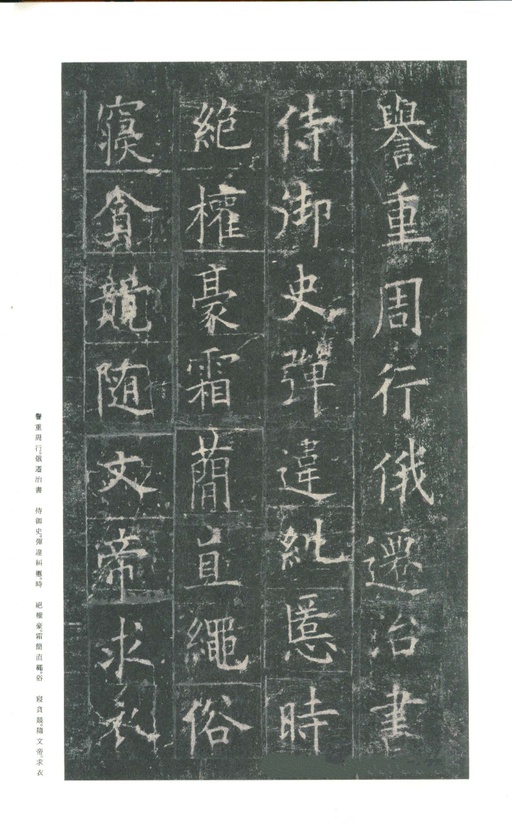 譽重周行俄遷治書
侍御史彈違糾慝時
絶權豪霜蕳直繩俗
寝貪競随文帝求衣
譽重周行、俄遷治書 侍御史、彈違糾慝、時 絕權豪、霜簡直繩、俗 寢貪競、隨文帝、求衣